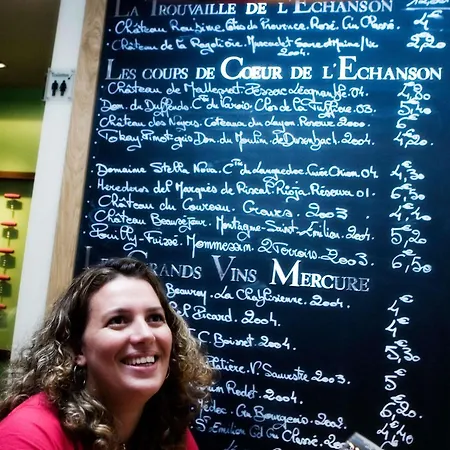 LA TROUVAILLE DE L'ECHANSON
Château Roubine Côtes de Provence Rosé. Cru Classé. 4€
Château de la Ragotière. Muscadet Sèvre et Maine/lie 2004. 2,20
LES COUPS DE COEUR DE L'ECHANSON
Château de Malleprat. Pessac Léognan 04. 4,80
Dom. de 04. 5,40
Château des Noyers. Coteaux du Layon Réserve 2000. 6€
Tokay Pinot-gris Dom. du Moulin de 2004. 4,40
Domaine Stella Nova. du Languedoc Cuvée Orion 04. 4,30
Herederos del Marqués de Riscal. Rioja Réserva 01. 6,50
Château du Courreau. Graves. 2003. 4,40
Château Beauséjour. Montagne-Saint-Emilion. 2004. 5,20
Pouilly-Fuissé. Mommessin. 2 Terroirs. 2003. 6,50
GRANDS VINS MERCURE
Beauroy. La Chablisienne. 2004. 4€
Picard. 2004. 4€
C. Boisset. 2004. 5,30
V. Sauvestre. 2003. 5€
Rodet. 2004. 6,20
Médoc. Cru Bourgeois. 2002. 4,40
St Emilion Gd Cru Classé. 200